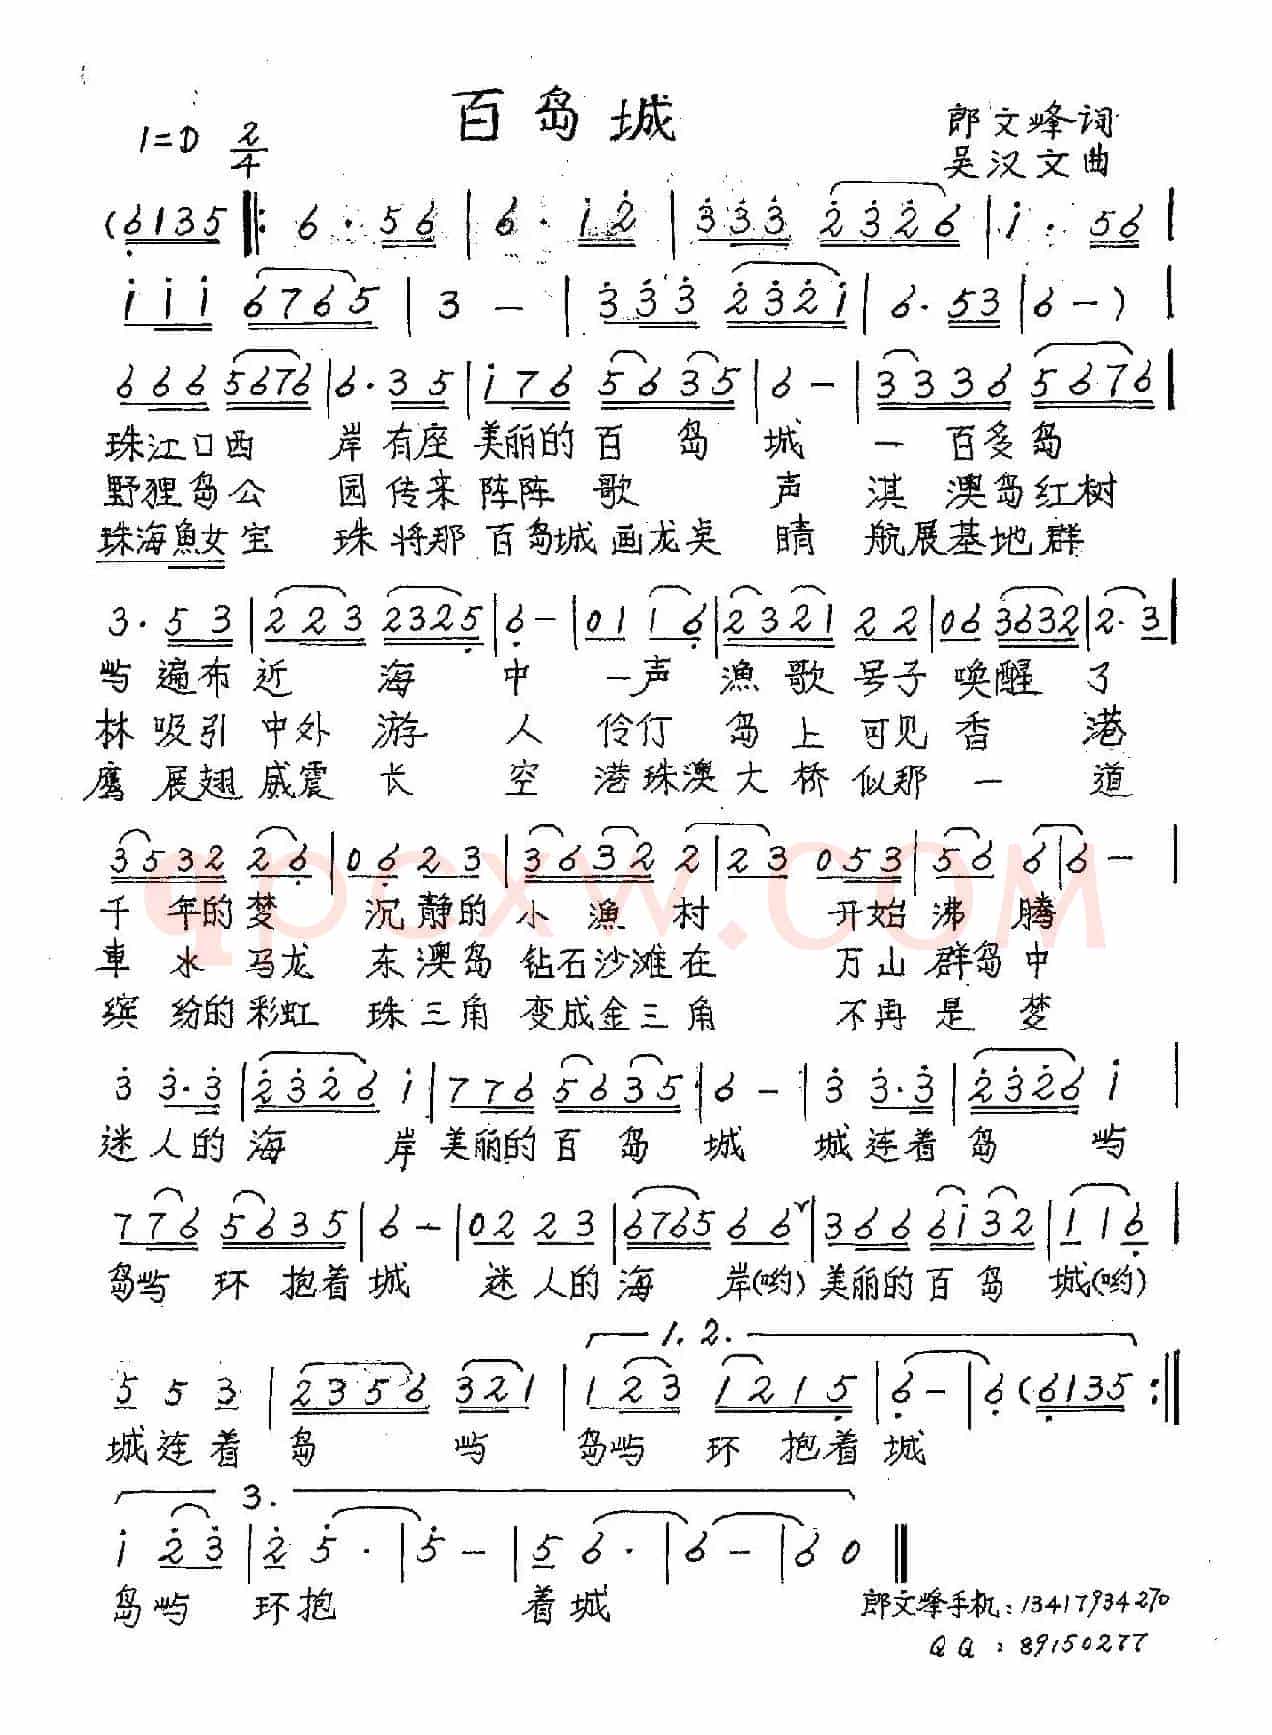 百岛城
1=D 2/4
郎文峰词
吴汉文曲
(6135 ‖: 6· 56 | 6· 12 | 333 2326 | 1· 56 |
111 6765 | 3 - | 333 2321 | 6· 53 | 6 - ) |
666 5676 | 6· 35 | 176 5635 | 6 - | 3336 5676 |
珠江口西 岸有座美丽的百岛城 一百多岛
野狸岛公 园传来阵阵歌声 淇澳岛红树
珠海魚女宝 珠将那百岛城画龙点睛 航展基地群
3· 53 | 223 2325 | 6 - | 01 16 | 2321 22 | 06 3632 | 2· 3 |
屿遍布近海中 一声漁歌号子唤醒了
林吸引中外游人 伶仃岛上可见香港
鹰展翅威震长空 港珠澳大桥似那一道
3532 26 | 06 23 | 3632 2 | 23 053 | 56 6 | 6 - |
千年的梦 沉静的小漁村 开始沸腾
車水马龙 东澳岛钻石沙滩在 万山群岛中
缤纷的彩虹 珠三角变成金三角 不再是梦
3 3·3 | 2326 1 | 776 5635 | 6 - | 3 3·3 | 2326 1 |
迷人的海岸美丽的百岛城 城连着岛屿
776 5635 | 6 - | 02 23 | 6765 66 | 366 6132 | 1 16 |
岛屿环抱着城 迷人的海岸(哟)美丽的百岛城(哟)
1.2.
5 5 3 | 2356 321 | 123 1215 | 6 - | 6 (6135 :‖
城连着岛屿 岛屿环抱着城
3.
1 23 | 2 5· | 5 - | 5 6· | 6 - | 6 0 ‖
岛屿环抱 着城
郎文峰手机:13417934270
QQ:89150277
qpcxw.com